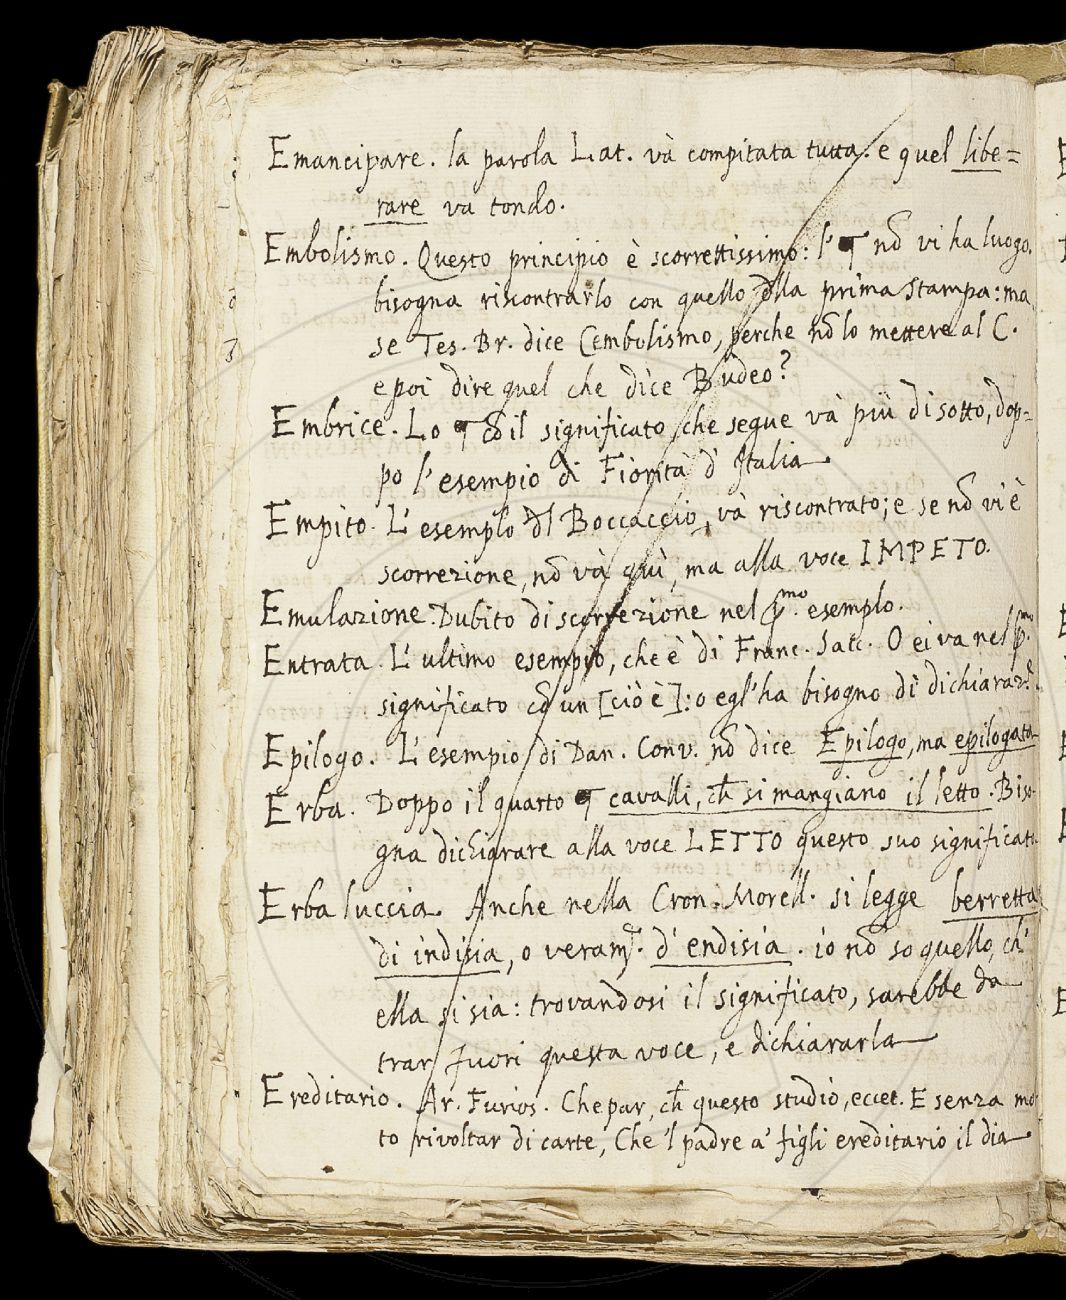 Emancipare. la parola Lat. và compitata tutta. e quel libe=
rare va tondo.
Embolismo. Questo principio è scorrettissimo: l' ¶ nō vi ha luogo.
bisogna riscontrarlo con quello dlla prima stampa: ma
se Tes. Br. dice Cembolismo, perche nō lo mettere al C.
e poi dire quel che dice Budeo?
Embrice. Lo ¶ cō il significato che segue và più di sotto, dop=
po l'esempio di Fiorità d' Italia
Empito. L' esemplo dl Boccaccio, và riscontrato; e se nō vi è
scorrezione, nō và quì, ma alla voce IMPETO.
Emulazione. Dubito di scorrezione nel p.mo esemplo.
Entrata. L' ultimo esempio, che è di Franc. Sacc. O ei va nel p.mo
significato cō un [ciò è]: o egl' ha bisogno di
Epilogo. L' esempio di Dan. Conv. nō dice Epilogo, ma epilogata
Erba. Doppo il quarto ¶ cavalli, ch̄ si mangiano il letto. Biso
gna dichiarare alla voce LETTO questo suo significato
Erba luccia. Anche nella Cron. Morell. si legge berretta
di indisia, o veram.e d' endisia. io nō so quello, ch'
ella si sia: trovandosi il significato, sarebbe da
trar fuori questa voce, e dichiararla
Ereditario. Ar. Furios. Che par, ch̄ questo studio, eccet. E senza mol
to rivoltar di carte, Che 'l padre a' figli ereditario il dia